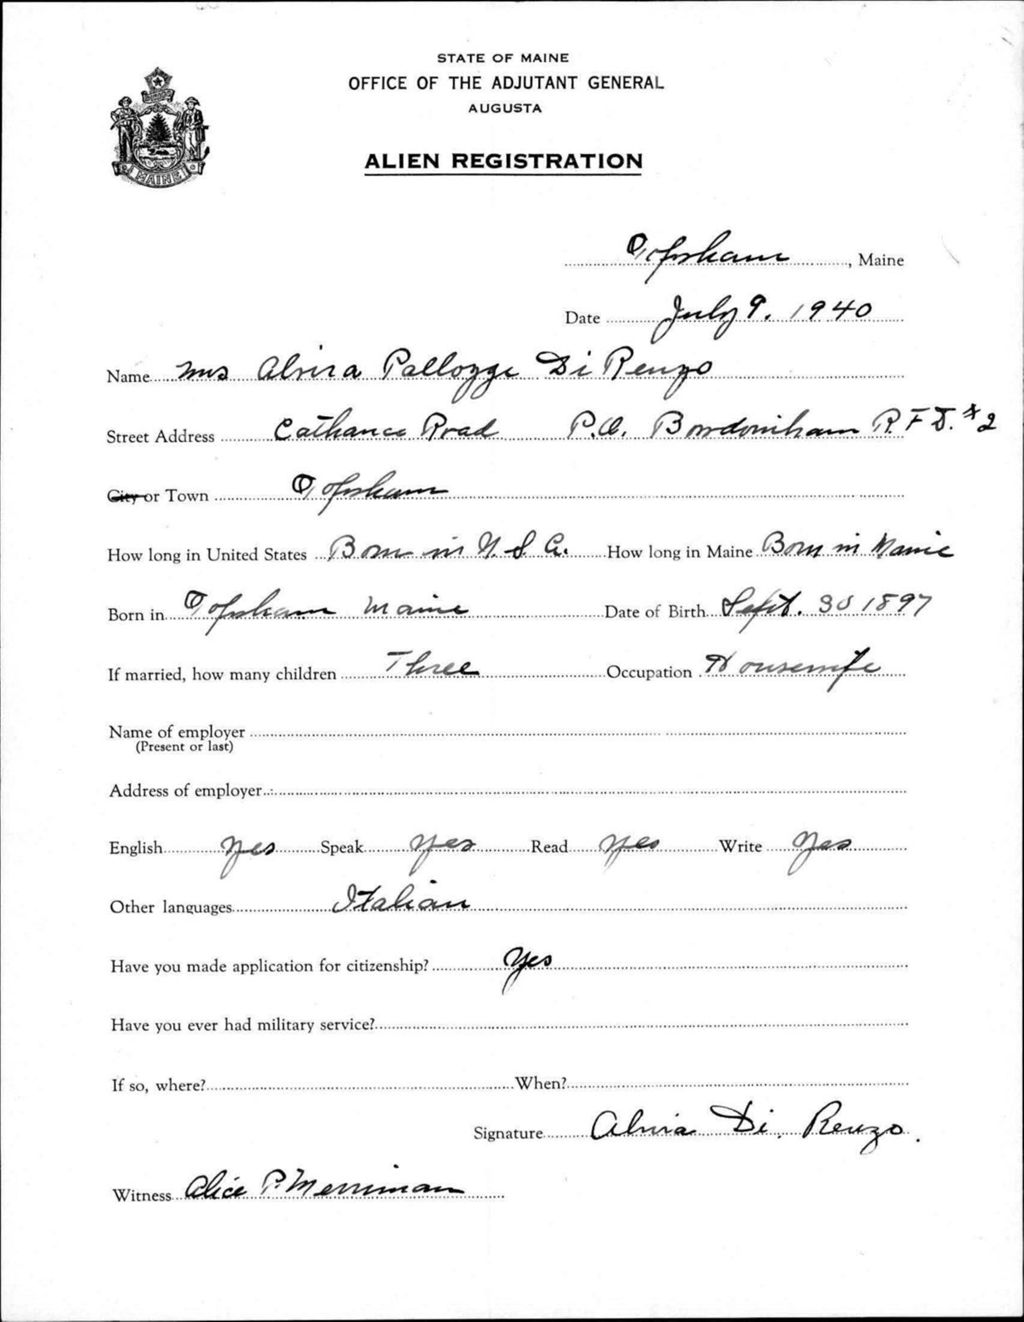 STATE OF MAINE
OFFICE OF THE ADJUTANT GENERAL
AUGUSTA
ALIEN REGISTRATION
MAINE
Topsham, Maine
Date July 9, 1940
Name Mrs Di Renzo
Street Address Cathance Road P.O. Bowdoinham R.F.D. #2
City or Town Topsham
How long in United States Born in U.S.A. How long in Maine Born in Maine
Born in Topsham Maine Date of Birth Sept. 30 1897
If married, how many children Three Occupation Housewife
Name of employer
(Present or last)
Address of employer
English yes Speak yes Read yes Write yes
Other languages Italian
Have you made application for citizenship? Yes
Have you ever had military service?
If so, where? When?
Signature Di Renzo.
Witness Alice P. Merriman